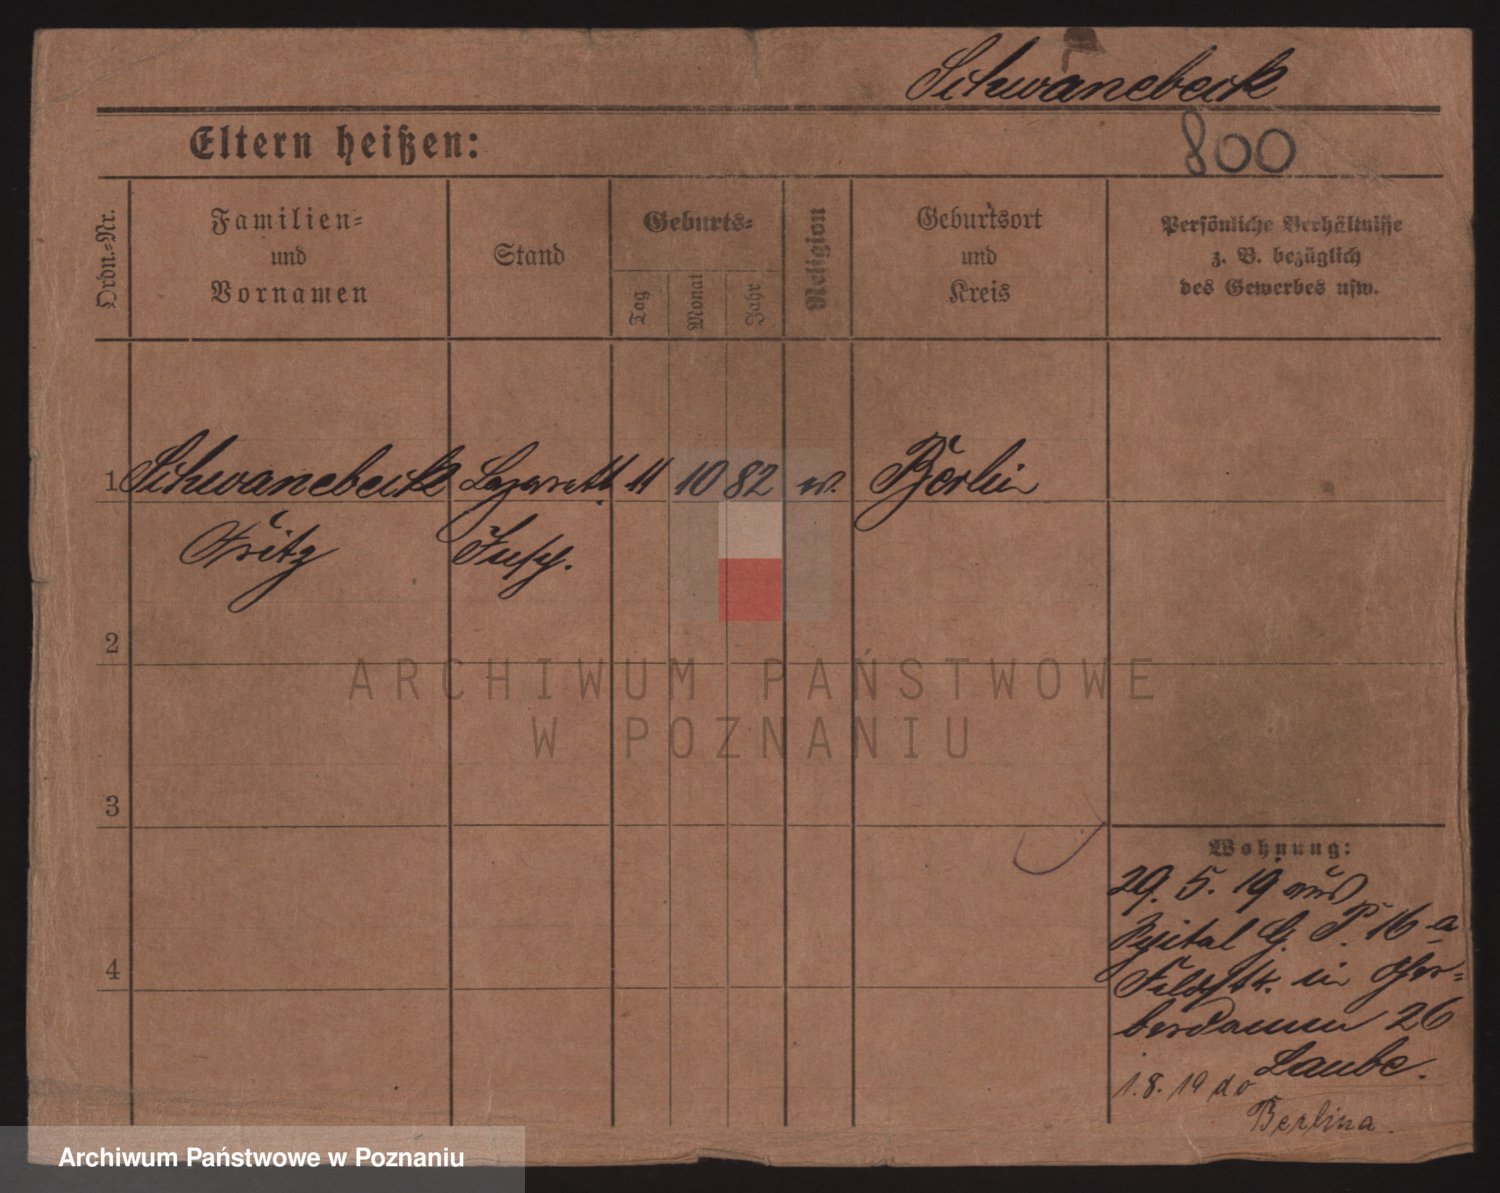 Schwanebeck
Eltern heißen:
800
Ordn.-Nr.
Familien-
und
Vornamen
Stand
Geburts-
Tag
Monat
Jahr
Religion
Geburtsort
und
Kreis
Persönliche Verhältnisse
z. B. bezüglich
des Gewerbes usw.
1 Schwanebeck Lazarett 11 10 82 ev. Berlin
Fritz Insp.
2
ARCHIWUM PAŃSTWOWE
W POZNANIU
3
Wohnung:
29. 5. 19 aus
Spital G. P. 16 a
Feldstr. in Ger-
berdamm 26
4
Laube.
1. 8. 19 do
Berlina.
Archiwum Państwowe w Poznaniu